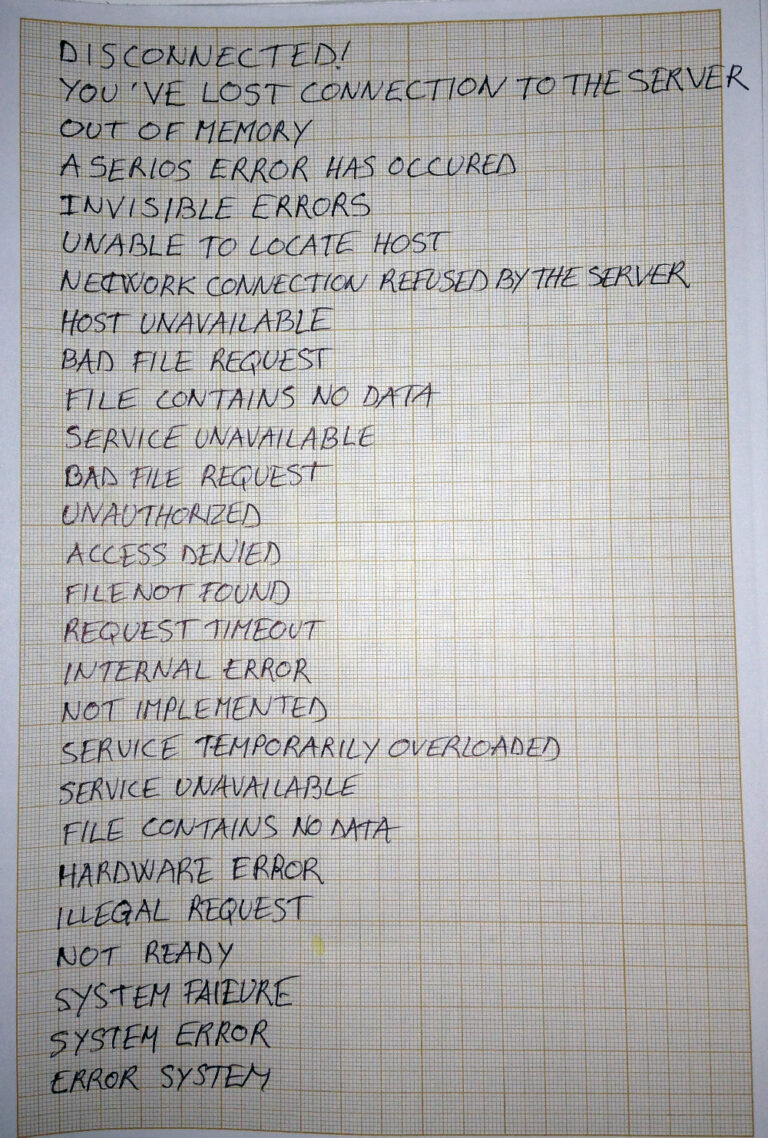 DISCONNECTED!
YOU'VE LOST CONNECTION TO THE SERVER
OUT OF MEMORY
A SERIOS ERROR HAS OCCURED
INVISIBLE ERRORS
UNABLE TO LOCATE HOST
NETWORK CONNECTION REFUSED BY THE SERVER
HOST UNAVAILABLE
BAD FILE REQUEST
FILE CONTAINS NO DATA
SERVICE UNAVAILABLE
BAD FILE REQUEST
UNAUTHORIZED
ACCESS DENIED
FILE NOT FOUND
REQUEST TIMEOUT
INTERNAL ERROR
NOT IMPLEMENTED
SERVICE TEMPORARILY OVERLOADED
SERVICE UNAVAILABLE
FILE CONTAINS NO DATA
HARDWARE ERROR
ILLEGAL REQUEST
NOT READY
SYSTEM FAIEURE
SYSTEM ERROR
ERROR SYSTEM